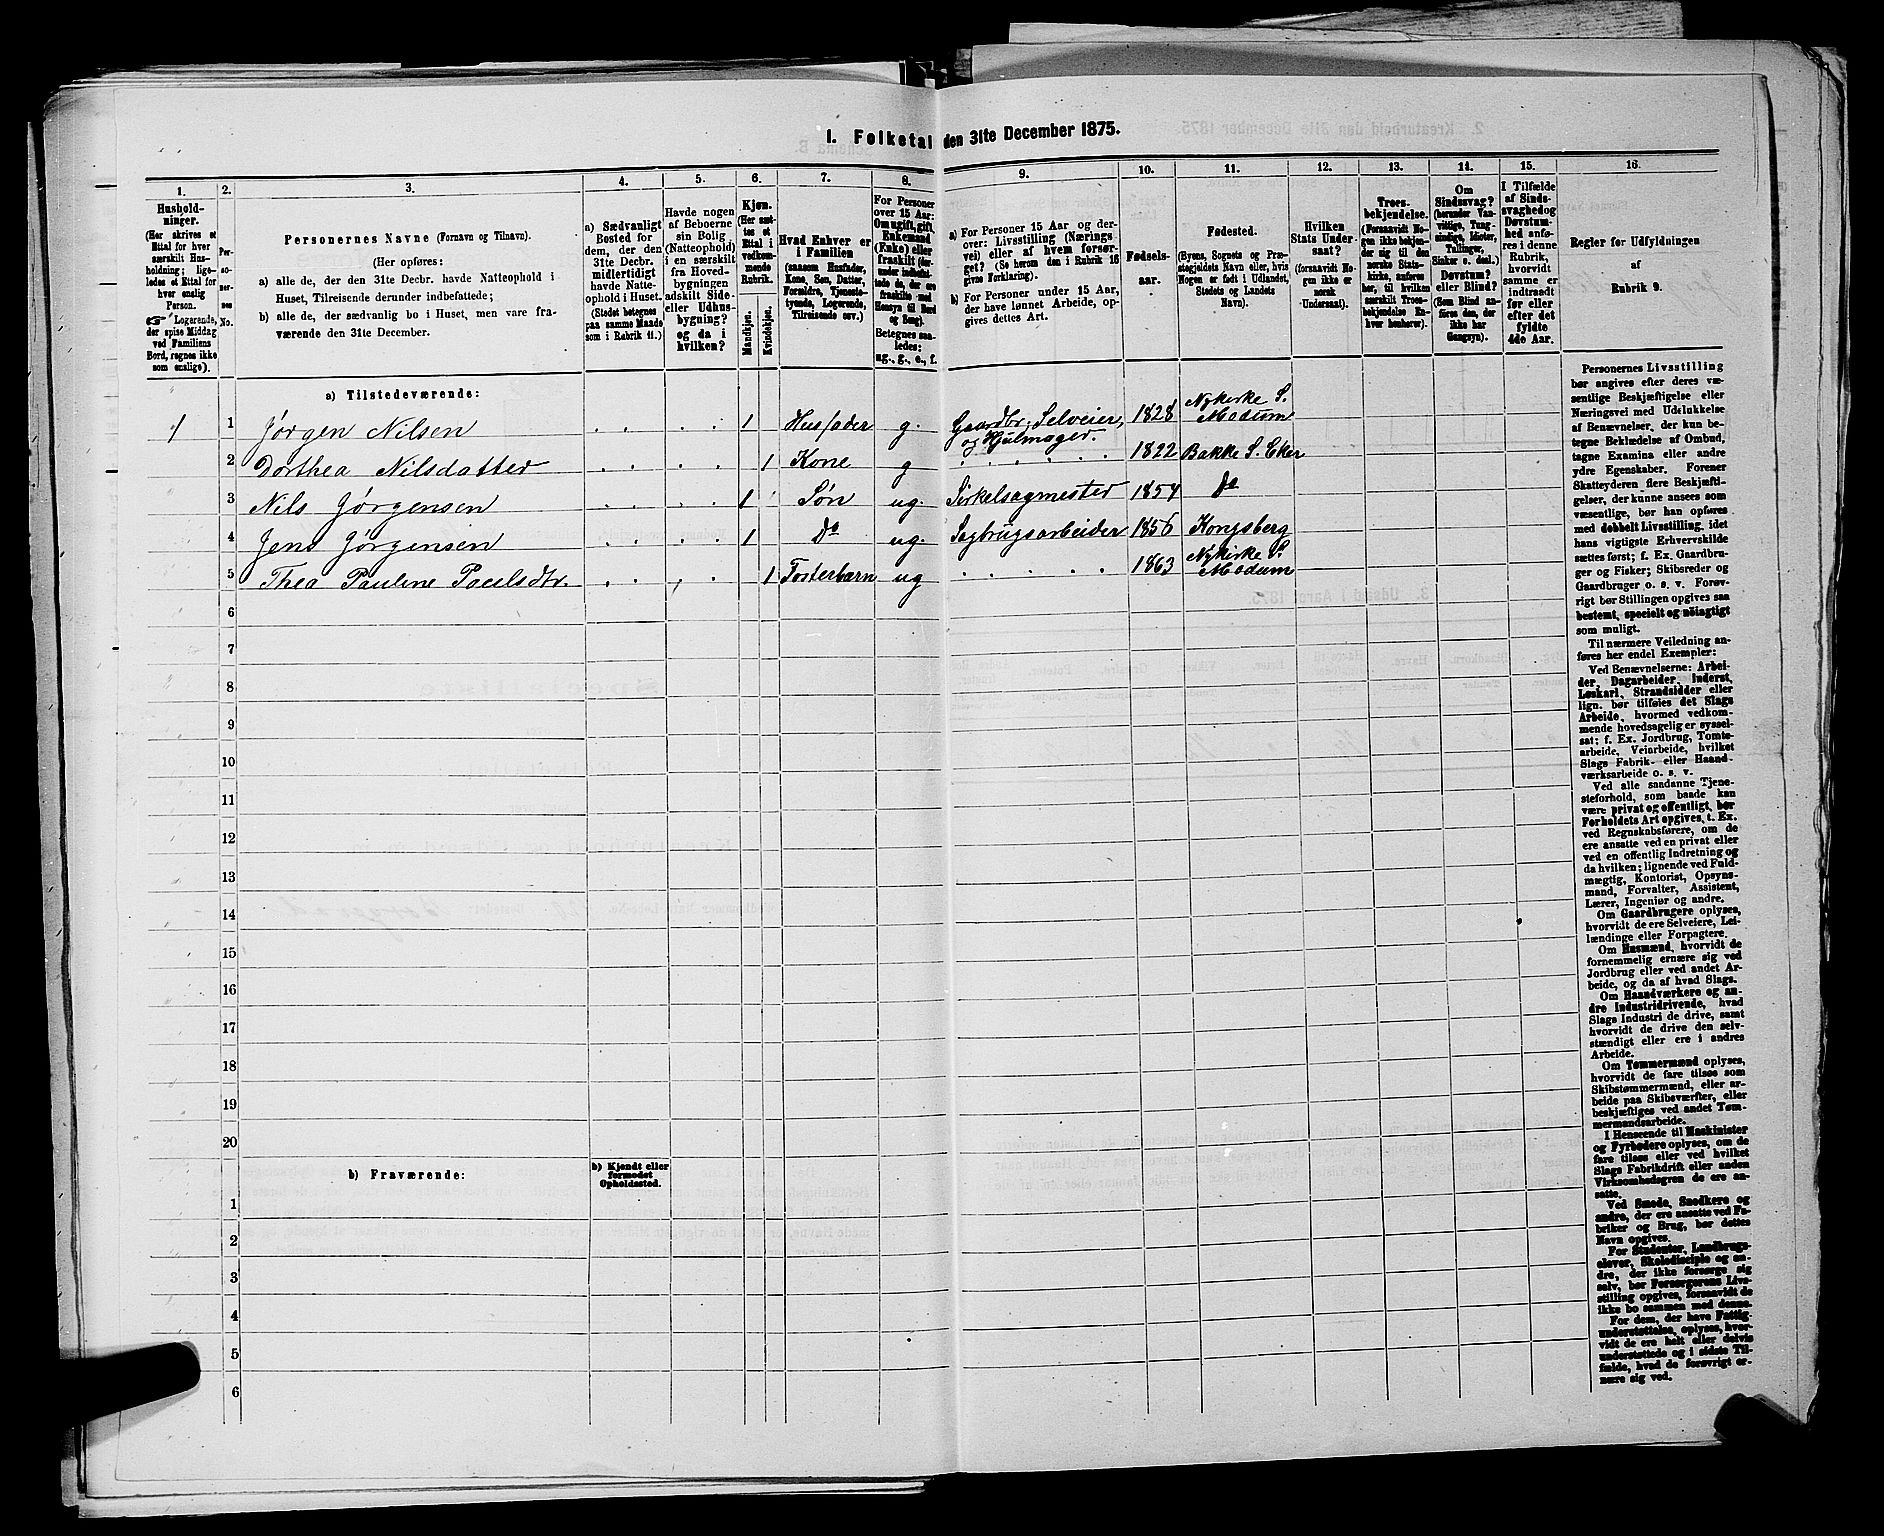 1. Folketal den 31te December 1875.
1.
2.
3.
4.
5.
6.
7.
8.
9.
10.
11.
12.
13.
14.
15.
16.
Hushold-
ninger.
(Her skrives et
Ettal for hver
særskilt Hus-
holdning; lige-
ledes et Ettal for
hver enslig
Person.
Logerende,
der spise Middag
ved Familiens
Bord, regnes ikke
som enslige).
Per-
so-
ner-
nes
No.
Personernes Navne (Fornavn og Tilnavn).
(Her opføres:
a) alle de, der den 31te Decbr. havde Natteophold i
Huset, Tilreisende derunder indbefattede;
b) alle de, der sædvanlig bo i Huset, men vare fra-
værende den 31te December.
a) Sædvanligt
Bosted for
dem, der den
31te Decbr.
midlertidigt
havde Natte-
ophold i Huset.
(Stedet betegnes
paa samme Maade
som i Rubrik 11.)
Havde nogen
af Beboerne
sin Bolig
(Natteophold)
i en særskilt
fra Hoved-
bygningen
adskilt Side-
eller Udhus-
bygning?
og da i
hvilken?
Kjøn.
(Her sæt-
tes et
Ettal i
vedkom-
mende
Rubrik.
Mandkjøn.
Kvindekjøn.
Hvad Enhver er
i Familien
(saasom Husfader,
Kone, Søn, Datter,
Forældre, Tjeneste-
tyende, Logerende,
Tilreisende osv.)
For Personer
over 15 Aar:
Om ugift, gift,
Enkemand
(Enke) eller
fraskilt (der-
under indbefat-
tede de, der ere
fraskilte med
Hensyn til Bord
og Seng).
Betegnes saa-
ledes:
ug., g., e., f.
a) For Personer 15 Aar og der-
over: Livsstilling (Nærings-
vei) eller af hvem forsør-
get? (Se herom den i Rubrik 16
givne Forklaring).
b) For Personer under 15 Aar,
der have lønnet Arbeide, op-
gives dettes Art.
Fødsels-
aar.
Fødested.
(Byens, Sognets og Præ-
stegjeldets Navn eller, hvis
Nogen er født i Udlandet,
Stedets og Landets
Navn).
Hvilken
Stats Under-
saat?
(forsaavidt No-
gen ikke er
norsk
Undersaat).
Troes-
bekjendelse.
(Forsaavidt No-
gen ikke bekjen-
der sig til den
norske Stats-
kirke, anføres
her, til hvilken
særskilt Troes-
bekjendelse En-
hver henhører).
Om
Sindssvag?
(herunder Van-
vittige, Tung-
sindige, Idioter,
Tullinger,
Sinker o. desl.)
Døvstum?
eller Blind?
(Som Blind an-
føres den, der
ikke har
Gangsyn).
I Tilfælde
af Sinds-
svaghed og
Døvstum-
hed anfø-
res i denne
Rubrik,
hvorvidt
samme er
indtraadt
før eller
efter det
fyldte
4de Aar.
Regler for Udfyldningen
af
Rubrik 9.
a) Tilstedeværende:
1 1 Jørgen Nilsen 1 Husfader g. Gaardbr, Selveier, og Hjulmager. 1828 Nykirke S. Modum
2 Dorthea Nilsdatter 1 Kone g 1822 Bakke S. Eker
3 Nils Jørgensen 1 Søn ug. Sirkelsagmester 1854 Do
4 Jens Jørgensen 1 Do ug. Sagbrugsarbeider 1856 Kongsberg
5 Thea Pauline Poulsdtr. 1 Fosterbarn ug 1863 Nykirke S. Modum
6
7
8
9
10
11
12
13
14
15
16
17
18
19
20
b) Fraværende:
b) Kjendt eller
formodet
Opholdssted.
1
2
3
4
5
6
Personernes Livsstilling
bør angives efter deres væ-
sentlige Beskjæftigelse eller
Næringsvei med Udelukkelse
af Benævnelser, der kun be-
tegne Beklædelse af Ombud,
tagne Examina eller andre
ydre Egenskaber. Forener
Skatteyderen flere Beskjæfti-
gelser, der kunne ansees som
væsentlige, bør han opføres
med dobbelt Livsstilling, idet
hans vigtigste Erhvervskilde
sættes først; f. Ex. Gaardbru-
ger og Fisker; Skibsreder og
Gaardbruger o. s. v. Forøv-
rigt bør Stillingen opgives saa
bestemt, specielt og nöiagtigt
som muligt.
Til nærmere Veiledning an-
føres her endel Exempler:
Ved Benævnelserne: Arbei-
der, Dagarbeider, Inderst,
Løskarl, Strandsidder eller
lign. bør tilføies det Slags
Arbeide, hvormed vedkom-
mende hovedsagelig er syssel-
sat; f. Ex. Jordbrug, Tomte-
arbeide, Veiarbeide, hvilket
Slags Fabrik- eller Haand-
værksarbeide o. s. v.
Ved alle saadanne Tjene-
steforhold, som baade kan
være privat og offentligt, bør
Forholdets Art opgives, t. Ex.
ved Regnskabsførere, om de
ere ansatte ved en privat eller
ved en offentlig Indretning og
da hvilken; lignende ved Fuld-
mægtig, Kontorist, Opsyns-
mand, Forvalter, Assistent,
Lærer, Ingeniør og andre.
Om Gaardbrugere oplyses,
hvorvidt de ere Selveiere, Lei-
lændinge eller Forpagtere.
Om Husmænd, hvorvidt de
fornemmelig ernære sig ved
Jordbrug eller ved andet Ar-
beide, og da af hvad Slags.
Om Haandværkere og an-
dre Industridrivende, hvad
Slags Industri de drive, samt
hvorvidt de drive den selv-
stændigt eller ere i andres
Arbeide.
Om Tømmermænd oplyses,
hvorvidt de fare tilsøs som
Skibstømmermænd, eller ar-
beide paa Skibsværfter, eller
beskjæftiges ved andet Tøm-
mermandsarbeide.
I Henseende til Maskinister
og Fyrbødere oplyses, om de
fare tilsøs eller ved hvilket
Slags Fabrikdrift eller anden
Virksomhedsgren de ere an-
satte.
Ved Smede, Snedkere og
andre, der ere ansatte ved Fa-
briker og Brug, bør dettes
Navn opgives.
For Studenter, Landbrugs-
elever, Skoledisciple og an-
dre, der ikke forsørge sig
selv, bør Forsørgerens Livs-
stilling opgives, forsaavidt de
ikke bo sammen med denne.
For dem, der have Fattig-
understøttelse, oplyses, hvor-
vidt de ere helt eller delvis
understøttede og i sidste Til-
fælde, hvad de forøvrigt er-
nære sig ved.